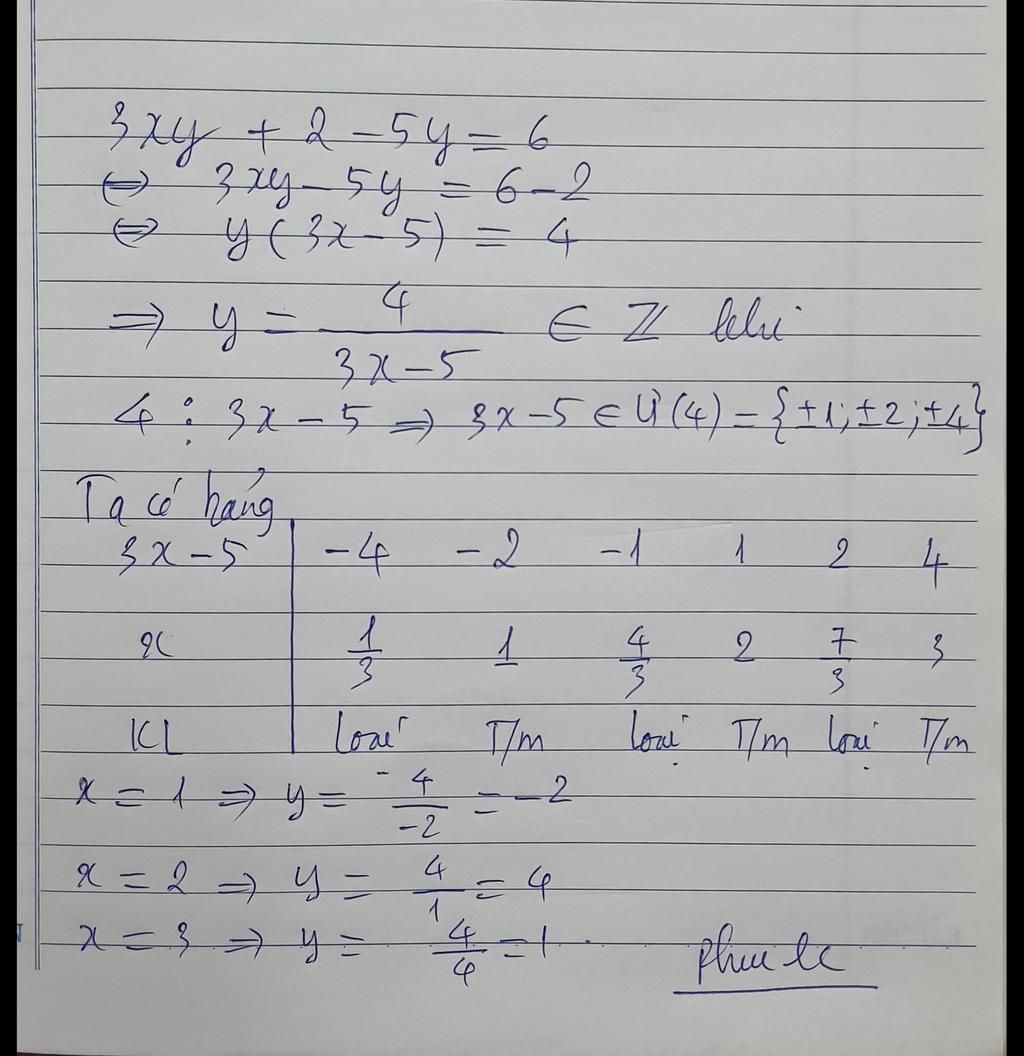 3xy + 2 - 5y = 6
⇔ 3xy - 5y = 6 - 2
⇔ y(3x - 5) = 4
⇒ y = 4/(3x - 5) ∈ Z khi
4 ⋮ 3x - 5 ⇒ 3x - 5 ∈ Ư(4) = {±1; ±2; ±4}
Ta có bảng
3x - 5 | -4 -2 -1 1 2 4
x | 1/3 1 4/3 2 7/3 3
KL | loại T/m loại T/m loại T/m
x = 1 ⇒ y = 4/-2 = -2
x = 2 ⇒ y = 4/1 = 4
x = 3 ⇒ y = 4/4 = 1